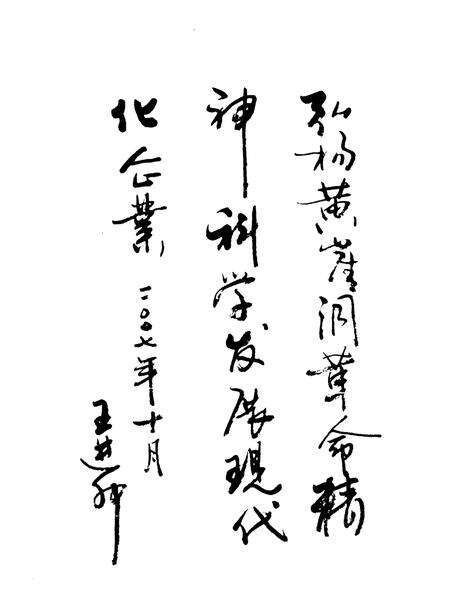 弘扬黄崖洞革命精
神科学发展現代
化企業 二〇〇七年十月
王进